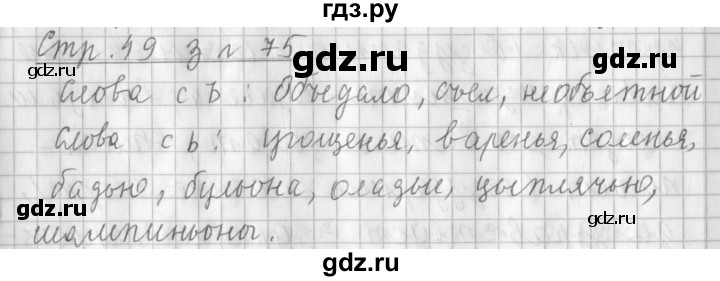 гдз.ру
Стр. 49 з n 75
gdz.ru gdz.ru
Слова с ъ: Объедало, съел, необъятной
gdz.ru
Слова с ь: угощенья, варенья, соленья,
бадью, бульона, оладьи, цыплячью,
gdz.ru gdz.ru
шампиньоны.
gdz.ru